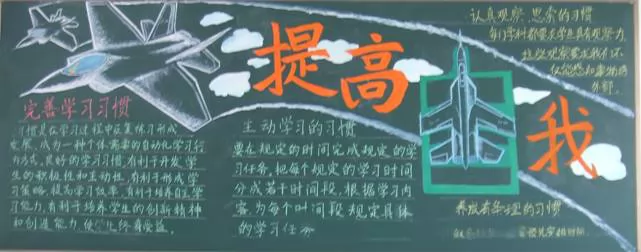 提高我
完善学习习惯
习惯是在学习过程中反复练习形成
发展,成为一种个体需要的自动化学习行
为方式。良好的学习习惯,有利于开发学
生的积极性和主动性,有利于形成学
习策略,提高学习效率,有利于培养自主学
习能力,有利于培养学生的创新精神
和创造能力,使学生终身受益。
主动学习的习惯
要在规定的时间完成规定的学
习任务,把每个规定的学习时间
分成若干时间段,根据学习内
容,为每个时间段规定具体
的学习任务
认真观察、思索的习惯
每门学科都要求学生具有观察力
这些观察要求我们不
仅能感知事物的
外部,
养成有条理的习惯